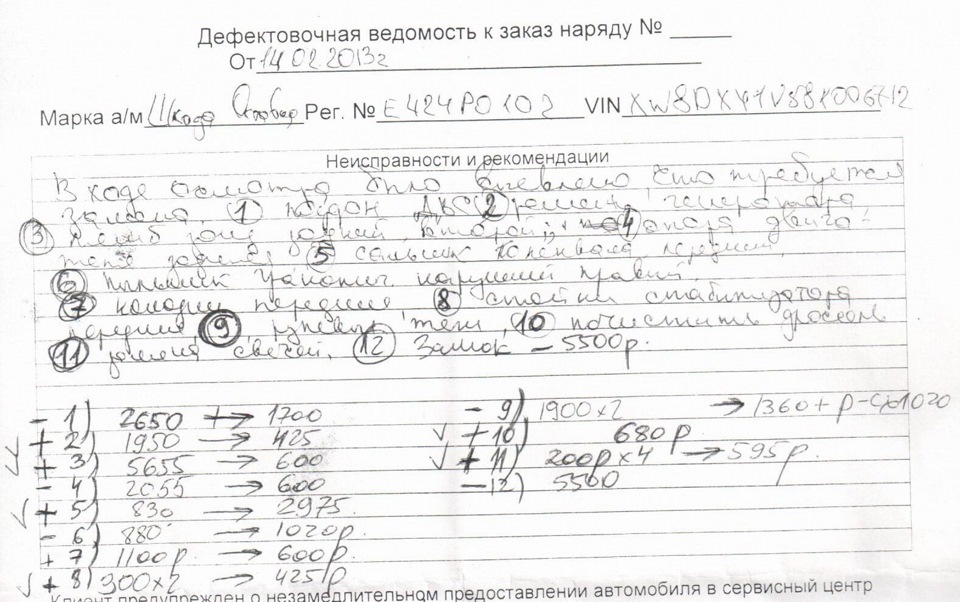 Дефектовочная ведомость к заказ наряду №
От 14.02.2013г
Марка а/м Шкода Октавиа Рег. № Е424РО102 VIN
Неисправности и рекомендации
В ходе осмотра было выевлено что требуется
замена. ① поддон ДВС ② ремень генератора
③ ④ опора двига-
теля задняя ⑤ сальник коленвала передний,
⑥ пыльник наружний правий.
⑦ колодки передния, ⑧ стойки стабилизатора
передния, ⑨ рулевые тяги, ⑩ почистить дроссель
⑪ замена свечей, ⑫ Замок – 5500р.
- 1) 2650 → 1700
+ 2) 1950 → 425
+ 3) 5655 → 600
- 4) 2055 → 600
+ 5) 830 → 2975
- 6) 880 → 1020р.
+ 7) 1100р. → 600р.
✓ + 8) 300×2 → 425р
- 9) 1900×2 → 1360 + 1020
✓ + 10) 680р
✓ + 11) 200р×4 → 595р.
- 12) 5500
Клиент предупрежден о незамедлительном предоставлении автомобиля в сервисный центр